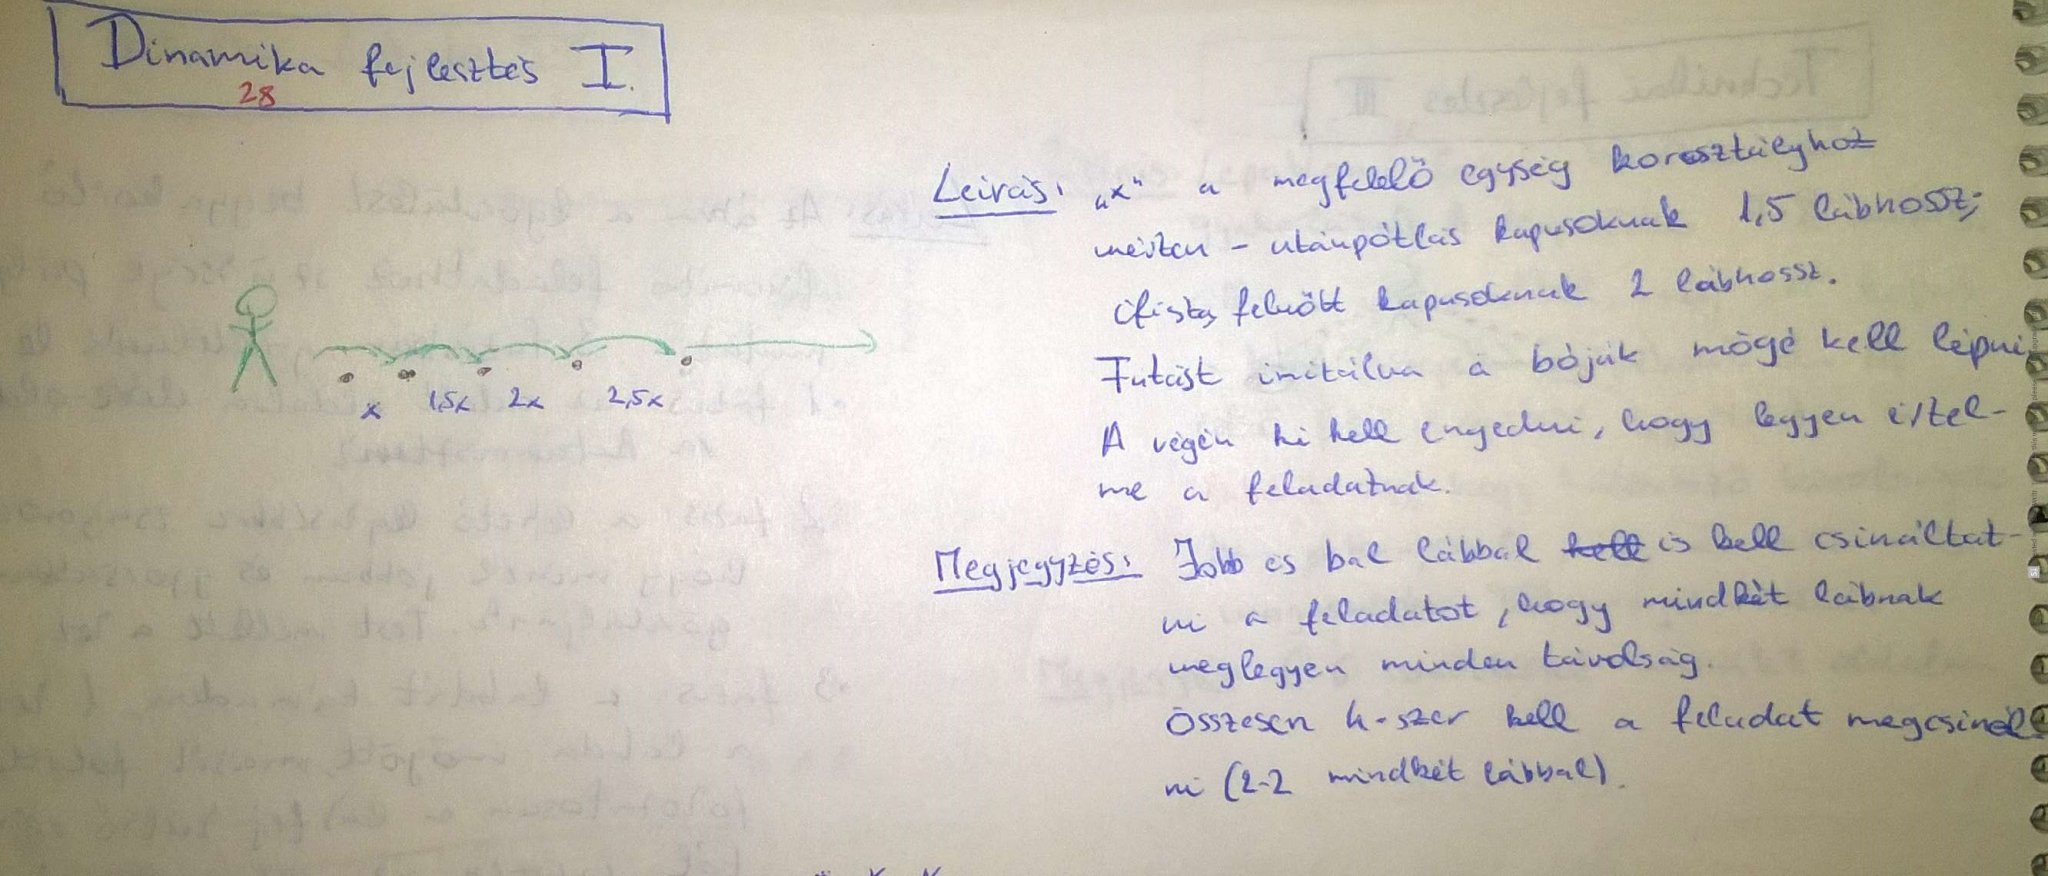 Dinamika fejlesztés I.
28
Leírás: „x" a megfelelő egység korosztályhoz
mérten - utánpótlás kapusoknak 1,5 lábhossz;
ifista, felnőtt kapusoknak 2 lábhossz.
Futást imitálva a bóják mögé kell lépni.
A végén ki kell engedni, hogy legyen értel-
me a feladatnak.
x 1,5x 2x 2,5x
Megjegyzés: Jobb és bal lábbal kell is kell csináltat-
ni a feladatot, hogy mindkét lábnak
meglegyen minden távolság.
Összesen 4-szer kell a feladat megcsinál-
ni (2-2 mindkét lábbal).